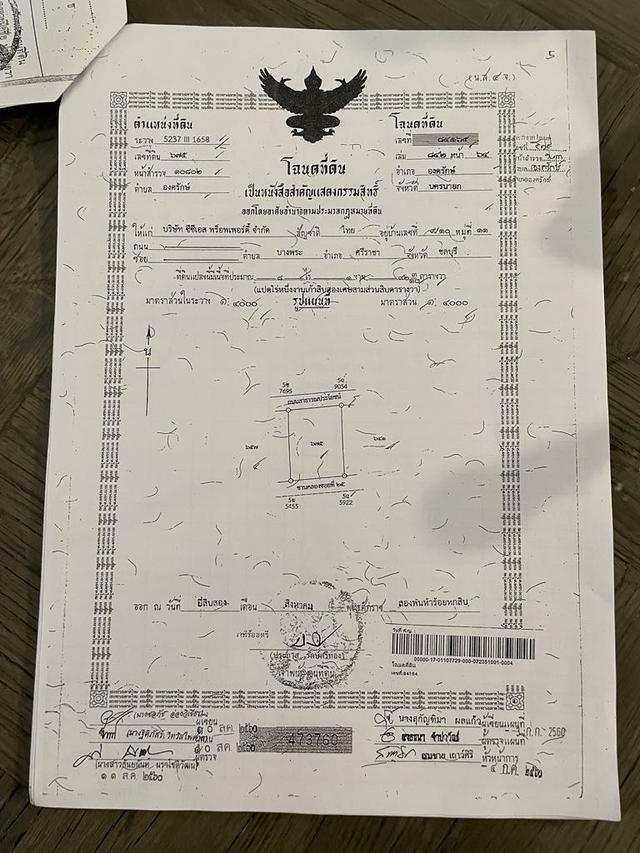 (น.ส. ๔ จ.)
5
ตำแหน่งที่ดิน
ระวาง 5237 III 1658
เลขที่ดิน ๖๗๕
หน้าสำรวจ ๑๐๘๐๒
ตำบล องครักษ์
โฉนดที่ดิน
เลขที่
เล่ม ๘๔๒ หน้า ๖๔
อำเภอ องครักษ์
จังหวัด นครนายก
โฉนดที่ดิน
เป็นหนังสือสำคัญแสดงกรรมสิทธิ์
ออกโดยอาศัยอำนาจตามประมวลกฎหมายที่ดิน
ให้แก่ บริษัท ซีซีเอส พร็อพเพอร์ตี้ จำกัด สัญชาติ ไทย อยู่บ้านเลขที่ ๙/๑๐ หมู่ที่ ๑๑
ถนน
ซอย ตำบล บางพระ อำเภอ ศรีราชา จังหวัด ชลบุรี
ที่ดินแปลงนี้มีเนื้อที่ประมาณ ๘ ไร่ ๑ งาน
(แปดไร่หนึ่งงานเก้าสิบสองเศษสามส่วนสิบตารางวา)
มาตราส่วนในระวาง ๑: ๔๐๐๐ รูปแผนที่ มาตราส่วน ๑: ๔๐๐๐
น
5ซ 7695
5ฉ 9054
ถนนสาธารณประโยชน์
๖๗๕
ชานคลองซอยที่ ๒๕
5ช 5455
5ฉ 5922
ออก ณ วันที่ ยี่สิบสอง เดือน สิงหาคม พุทธศักราช สองพันห้าร้อยหกสิบ
เจ้าพนักงานที่ดิน
00000-17-01107729-000-072351001-0004
โฉนดที่ดิน
473760
ผู้เขียน
๑๐ ส.ค. ๒๕๖๐
๑๐ ส.ค. ๒๕๖๐
ผู้ตรวจ
๑๑ ส.ค. ๒๕๖๐
ผู้เขียนแผนที่
ก.ค. 2560
ผู้ตรวจแผนที่
หัวหน้าการ
ก.ค. ๒๕๖๐